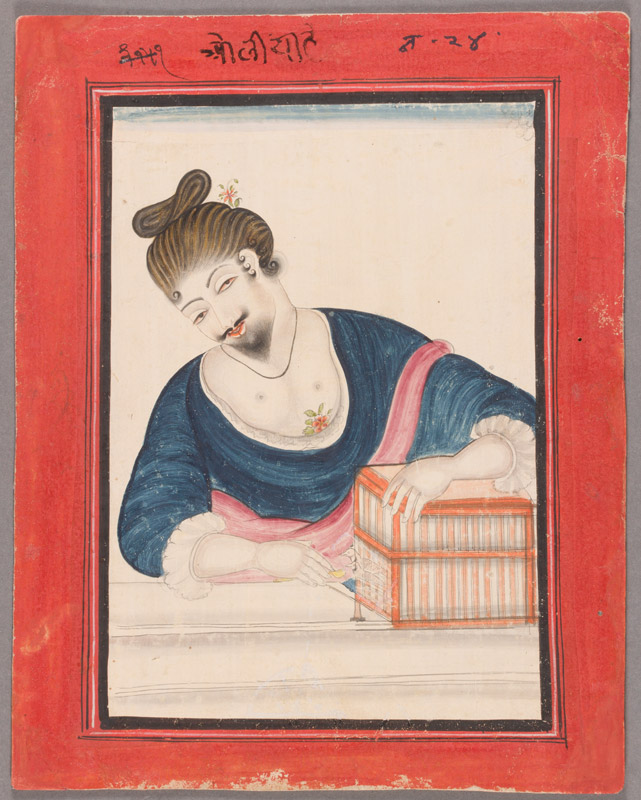 ओलीयाते न · २४ ·